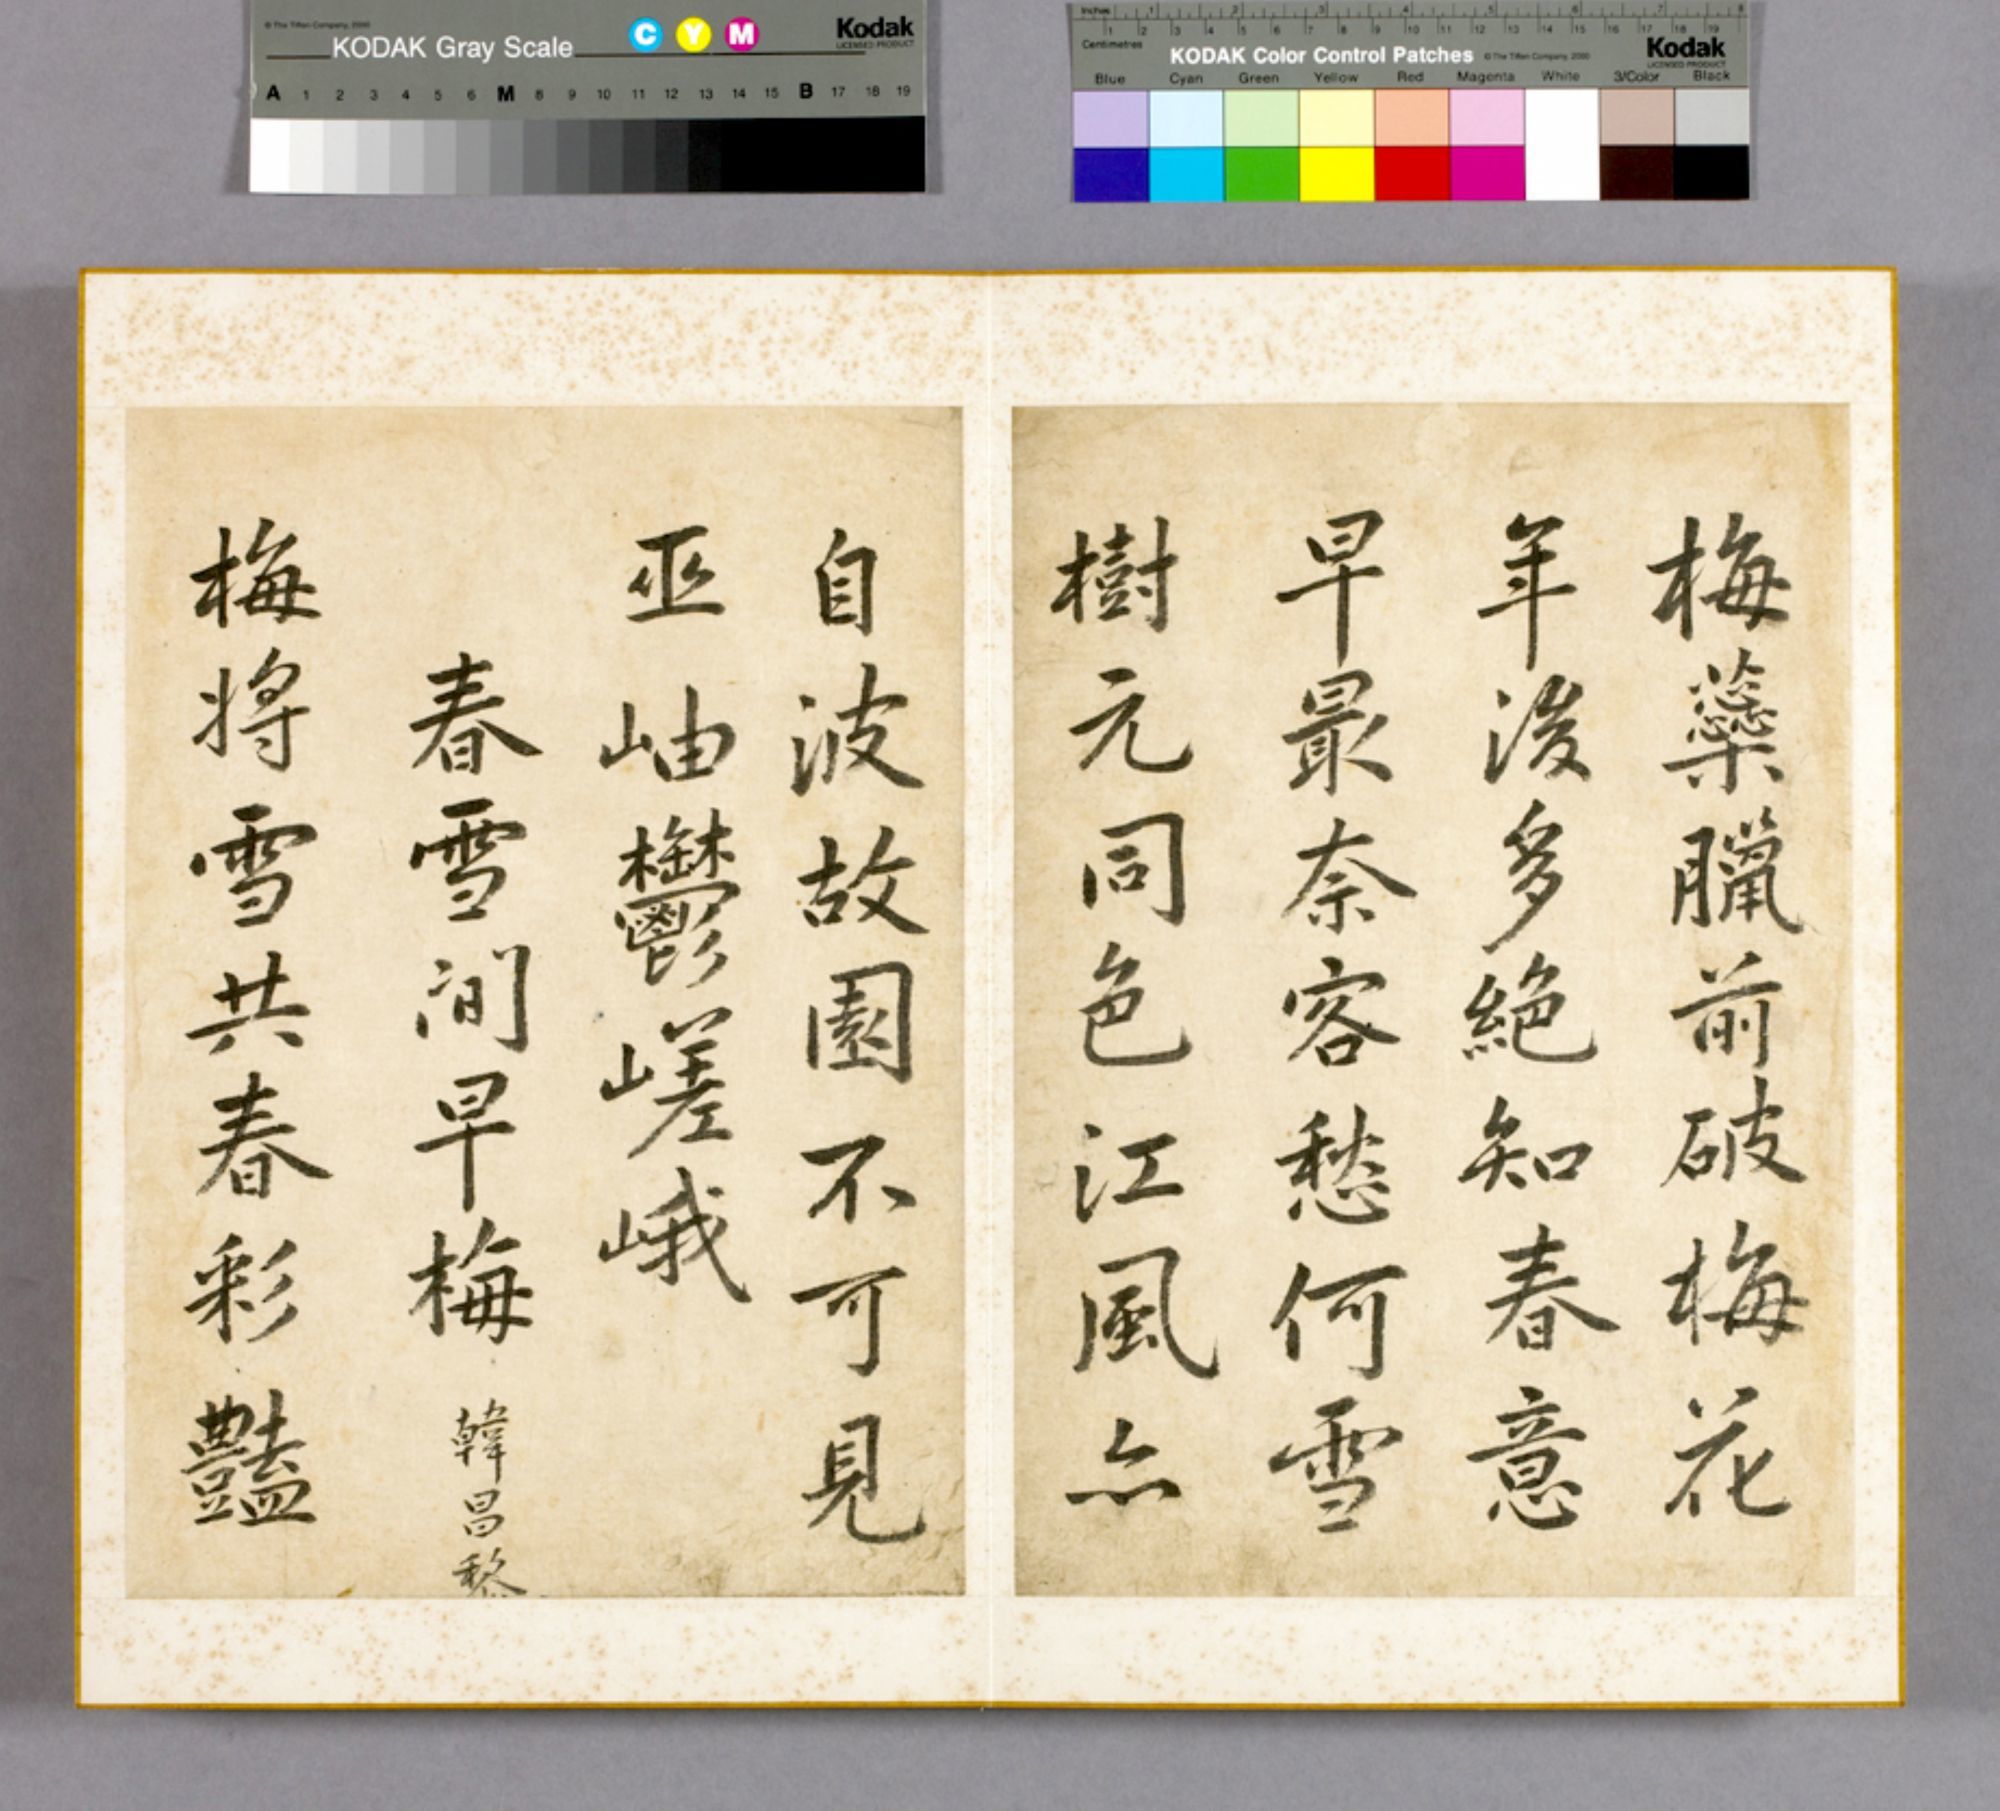 © The Tiffen Company, 2000
KODAK Gray Scale
C Y M
Kodak
LICENSED PRODUCT
A 1 2 3 4 5 6 M 8 9 10 11 12 13 14 15 B 17 18 19
Inches 1 2 3 4 5 6 7 8
Centimetres 1 2 3 4 5 6 7 8 9 10 11 12 13 14 15 16 17 18 19
KODAK Color Control Patches © The Tiffen Company, 2000
Kodak
LICENSED PRODUCT
Blue Cyan Green Yellow Red Magenta White 3/Color Black
梅蘂臘前破梅花
年後多絕知春意
早最奈客愁何雪
樹元同色江風亦
自波故園不可見
巫岫鬱嵯峨
春雪間早梅 韓昌黎
梅将雪共春彩豔